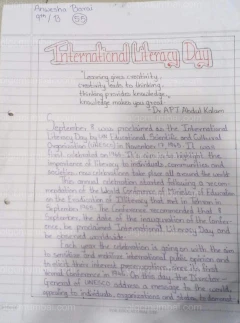 Anwesha Barial
9th / B 55
International Literacy Day
"Learning gives creativity,
creativity leads to thinking,
thinking provides knowledge,
knowledge makes you great."
- Dr. A.P.J. Abdul Kalam
September 8 was proclaimed as the International
Literacy Day by UN Educational, Scientific and Cultural
Organization (UNESCO) on November 17, 1965. It was
first celebrated on 1966. It's aim is to highlight the
importance of literacy to individuals, communities and
societies, now celebrations take place all around the world.
This annual celebration started following a recom-
mendation of the World Conference of Ministers of Education
on the Eradication of Illiteracy that met in Tehran in
September 1965. The Conference recommended that 8
September, the date of the inauguration of the Confer-
ence, be proclaimed International Literacy Day and
be observed worldwide.
Each year the celebration is going on with the aim
to sensitize and mobilize international public opinion and
to elicit their interest since its first
General Conference in 1966. On this day, the Director
General of UNESCO address a message to the world,
appealing to individuals, organizations and states to